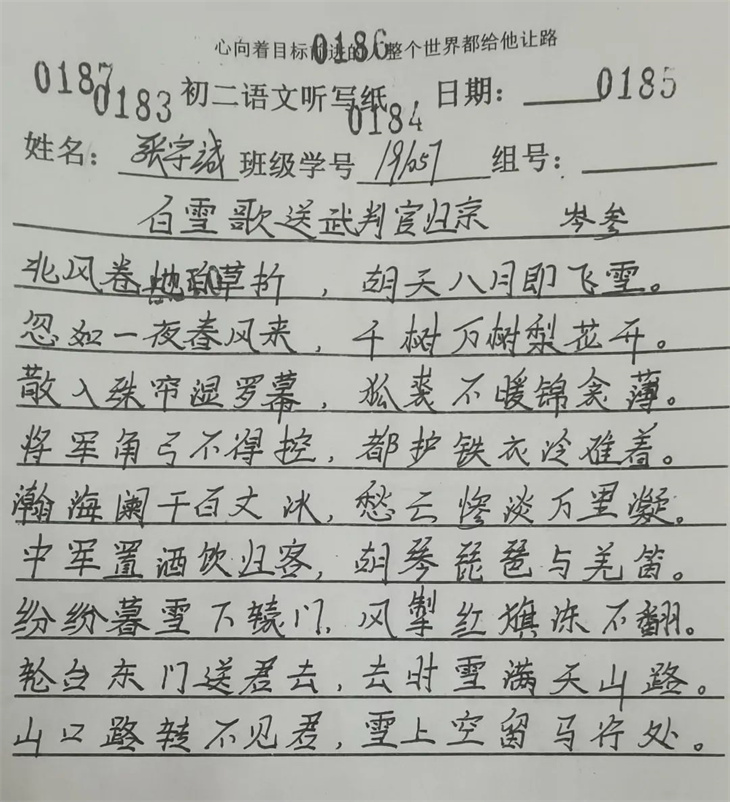 心向着目标前进的人整个世界都给他让路
0186
0187 0183 初二语文听写纸 0184 日期： 0185
姓名：张宇诚 班级学号 19/057 组号：
白雪歌送武判官归京 岑参
北风卷地白草折，胡天八月即飞雪。
忽如一夜春风来，千树万树梨花开。
散入珠帘湿罗幕，狐裘不暖锦衾薄。
将军角弓不得控，都护铁衣冷难着。
瀚海阑干百丈冰，愁云惨淡万里凝。
中军置酒饮归客，胡琴琵琶与羌笛。
纷纷暮雪下辕门，风掣红旗冻不翻。
轮台东门送君去，去时雪满天山路。
山口路转不见君，雪上空留马行处。